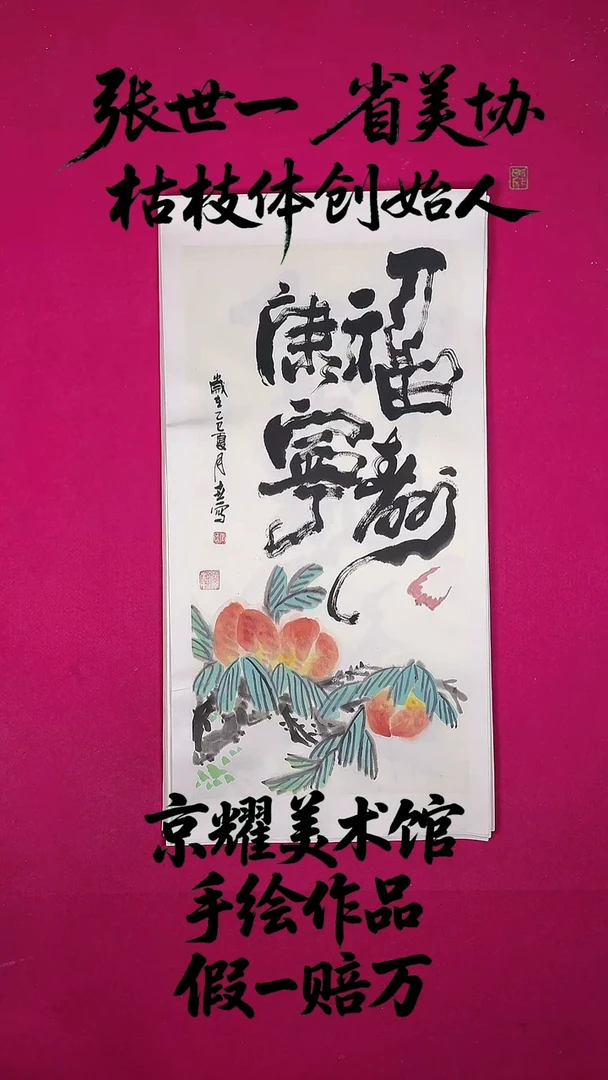 张世一 省美协
枯枝体创始人
福寿
康宁
歲在乙巳夏月世一寫
京耀美术馆
手绘作品
假一赔万